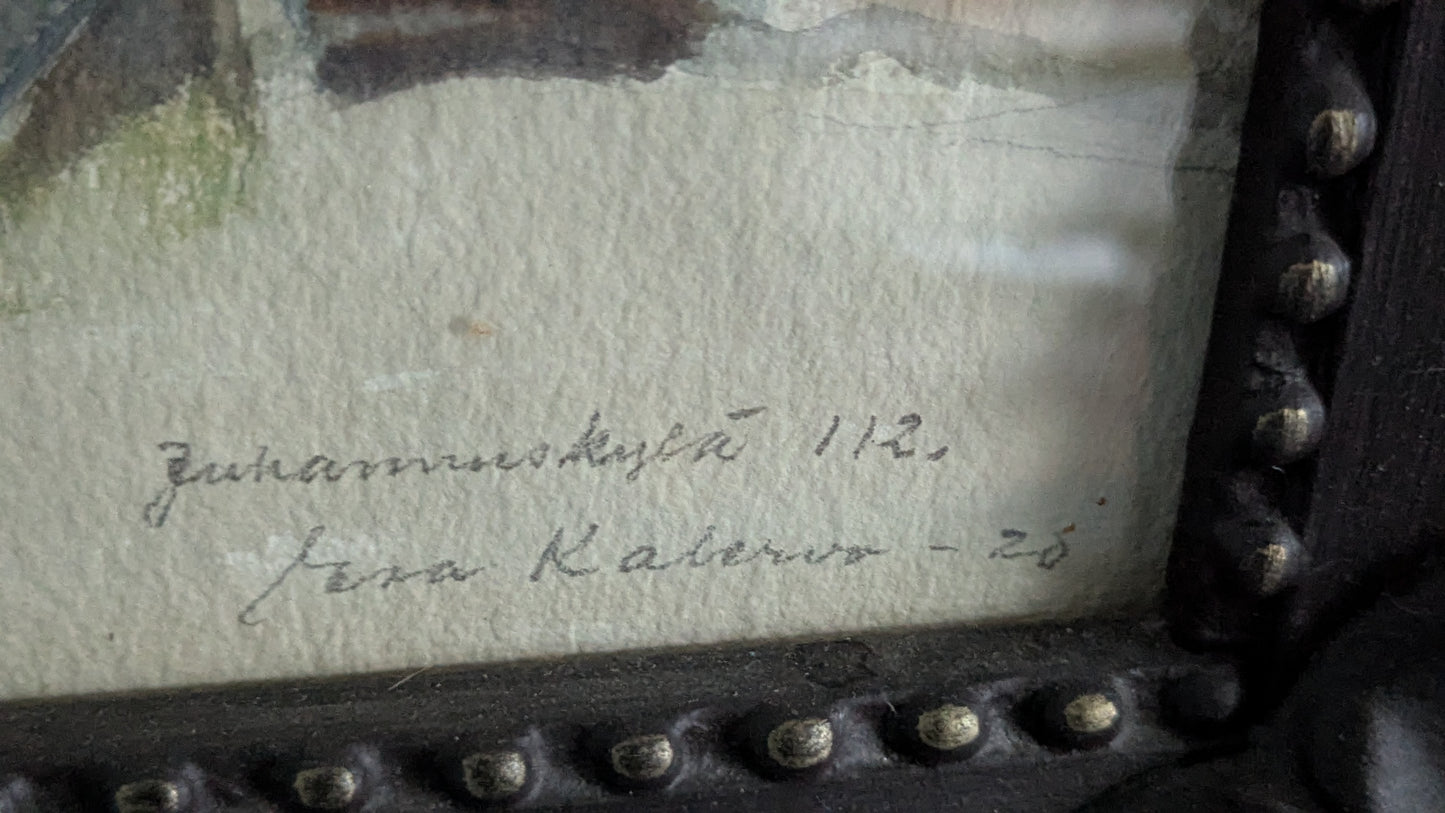 Juhannuskylä 112.
Kalervo - 26